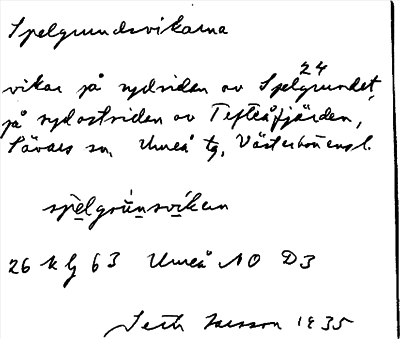 Spelgrundsvikarna
24
vikar på sydsidan av Spelgrundet,
på sydostsidan av Tefteåfjärden,
Sävars sn, Umeå tg, Västerbottensl.
spelgrúnsvíkan
26 kg 63 Umeå NO D3
Seth Larsson 1935